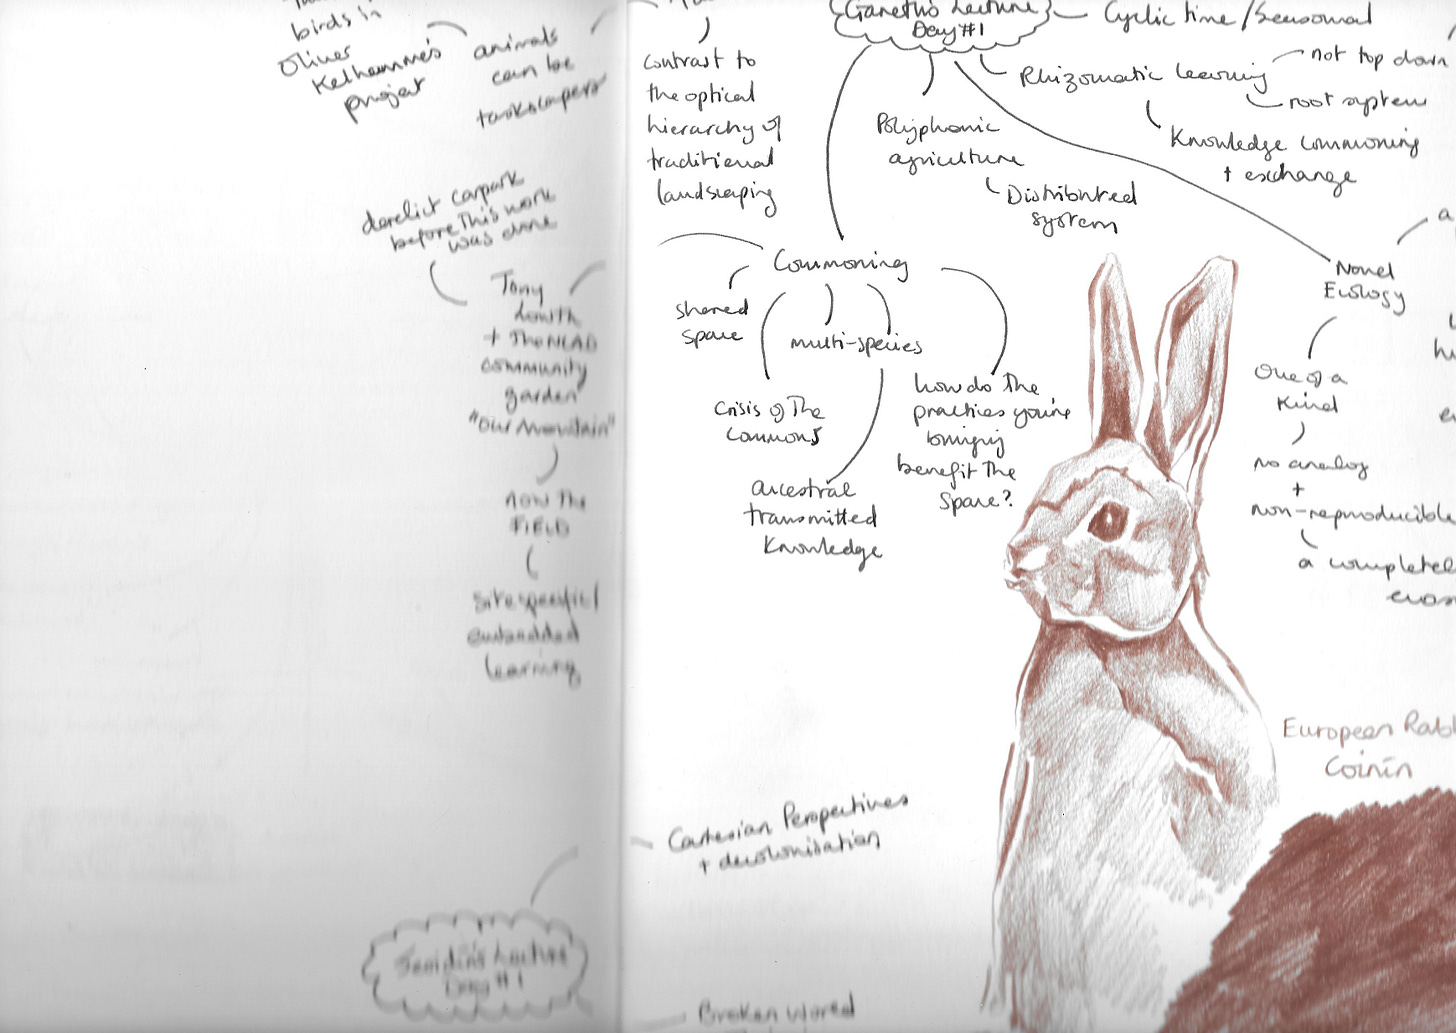 birds in
Oliver
Kelhammer's
project
animals
can be
taskscapers
derelict carpark
before this work
was done
Tony
Lowth
+ The NCAD
community
garden
"Our Mountain"
now the
FIELD
site specific/
embedded
learning
Day #1
contrast to
the optical
hierarchy of
traditional
landscaping
Gareth's Lecture
Day #1
Cyclic time / Seasonal
Rhizomatic learning
not top down
root system
Knowledge commoning
+ exchange
Polyphonic
agriculture
Distributed
system
Commoning
shared
space
multi-species
Crisis of The
Commons
ancestral
transmitted
Knowledge
how do the
practices you're
bringing
benefit the
space?
Novel
Ecology
a
One of a
Kind
no analog
+
non-reproducible
a complete
European Rab
Coinín
Cartesian Perspectives
+ decolonisation
Broken World